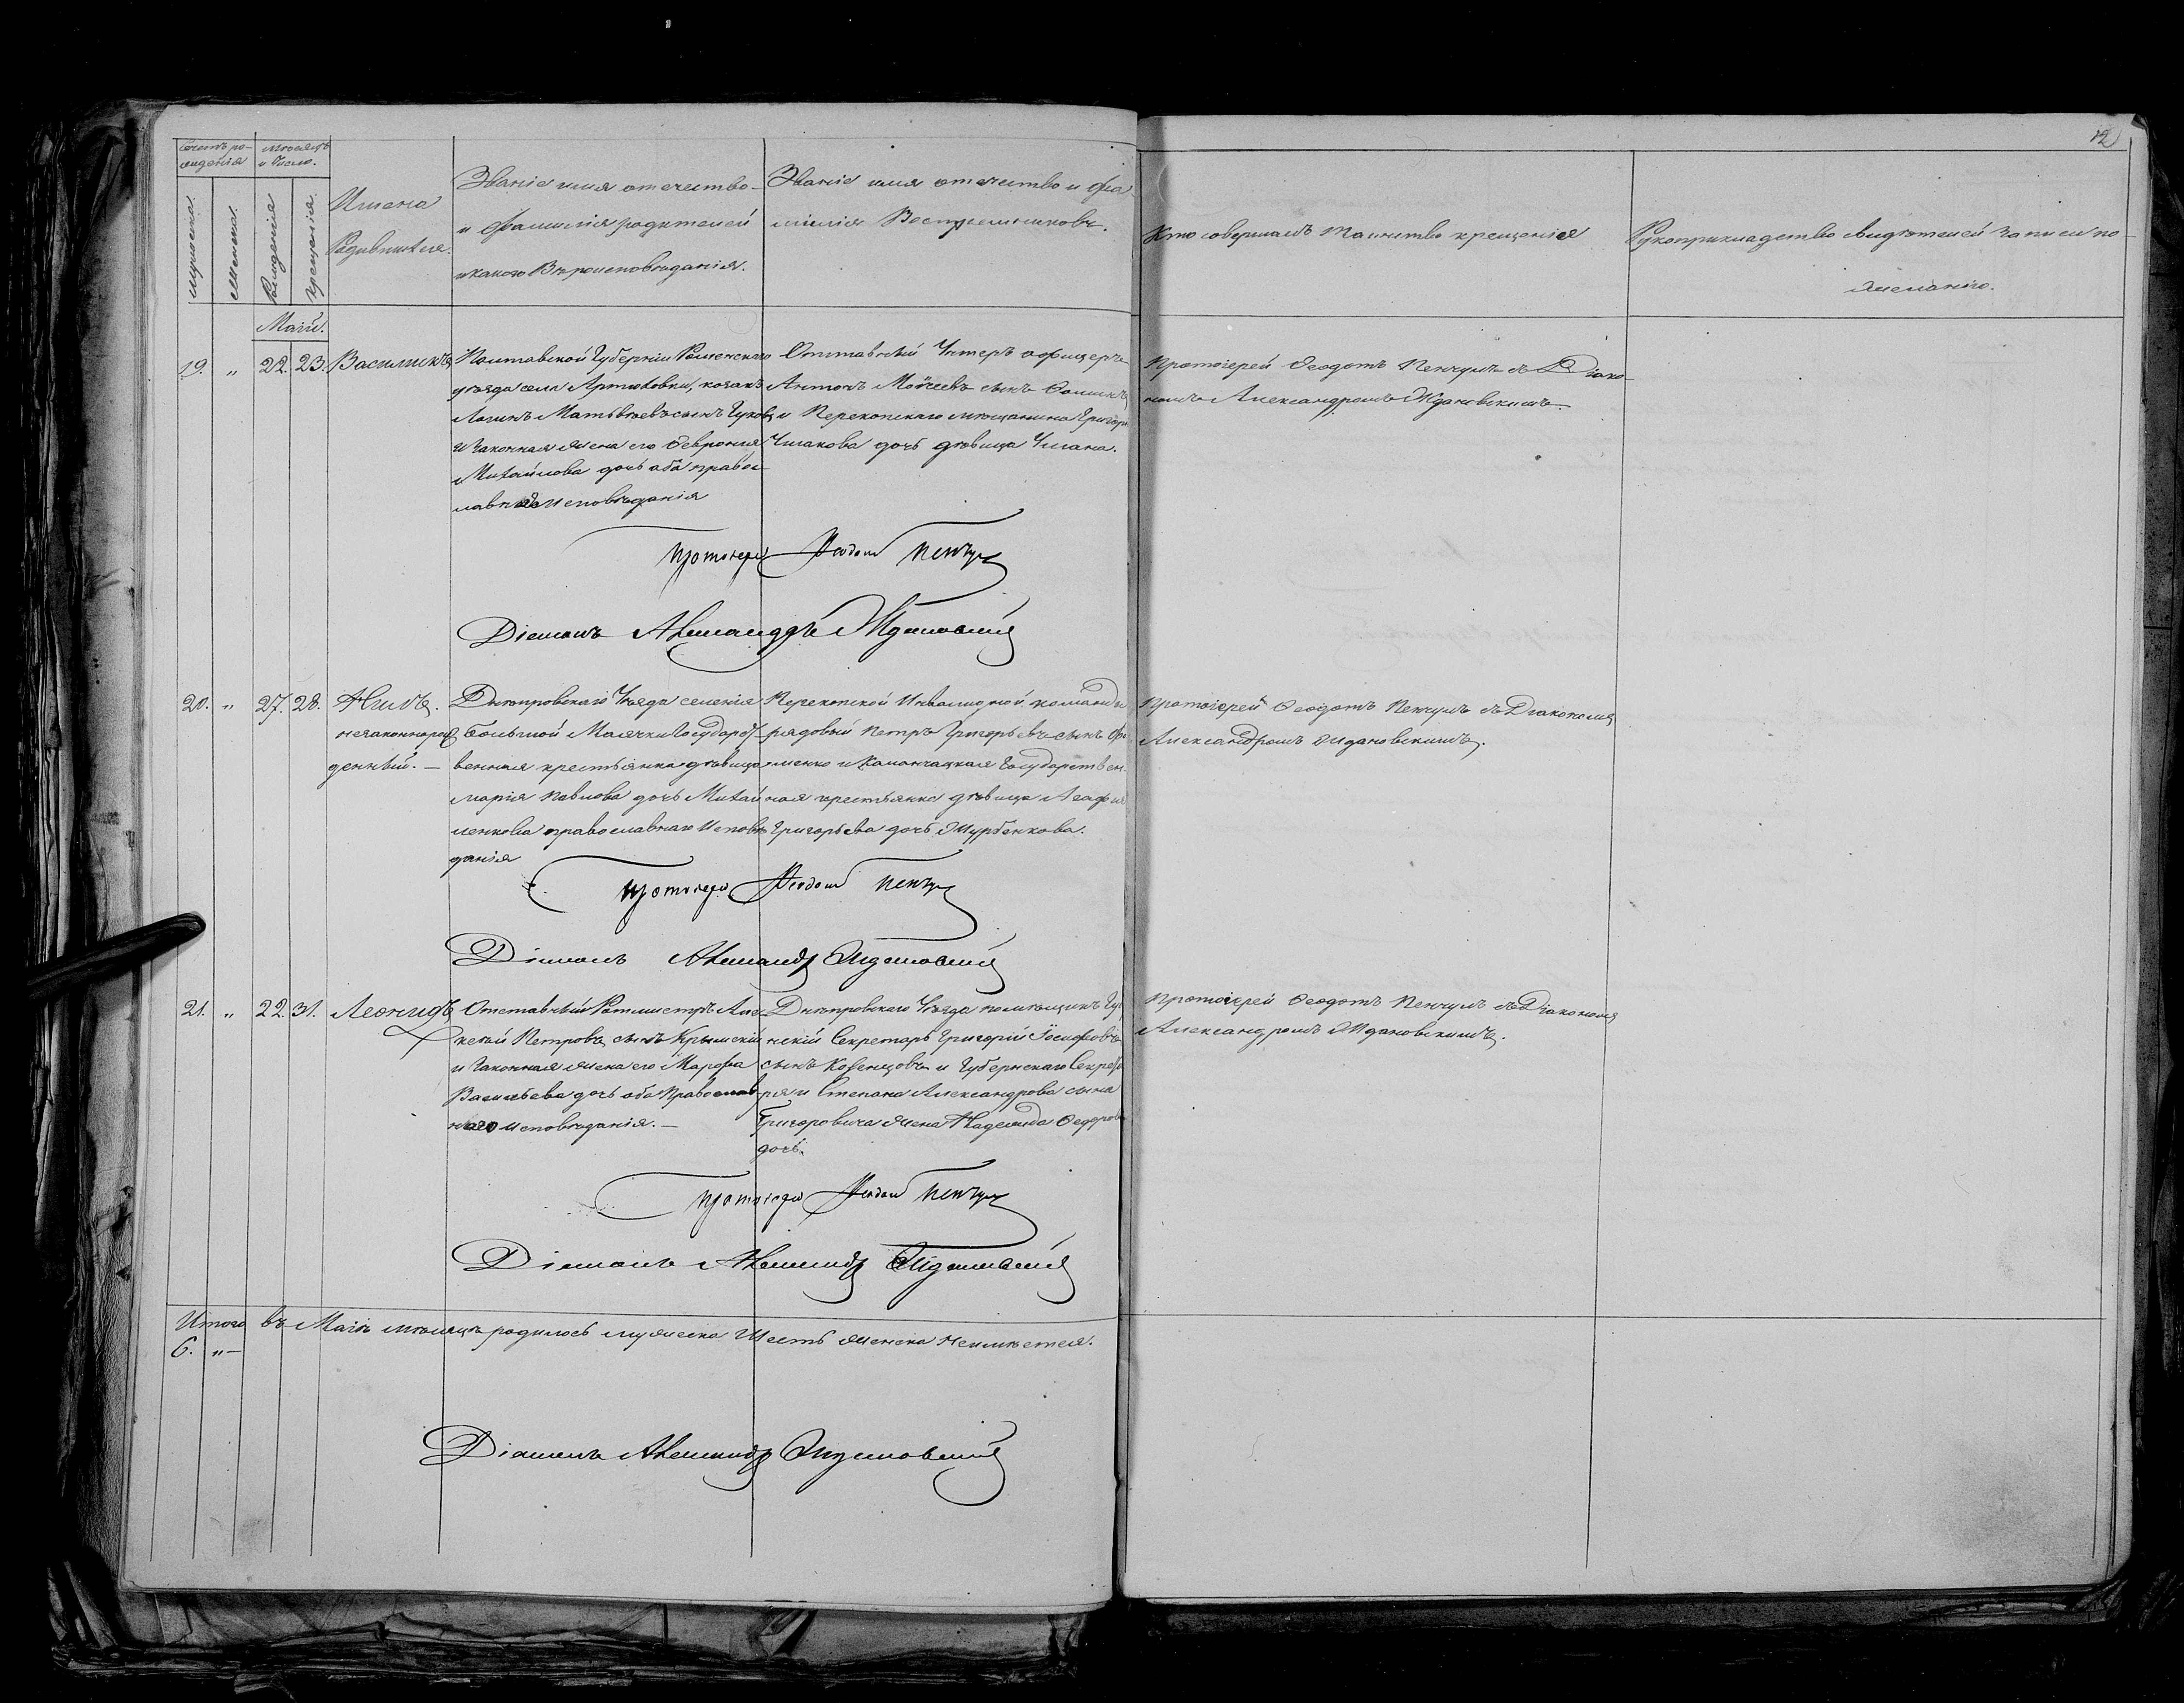 12
Счетъ ро-
жденія
Мѣсяцъ
и число.
мужеска.
женска.
Рожденія
крещенія.
Имена
Родившихся.
Званіе имя отечество
и Фамилія родителей
и какого Вѣроисповѣданія.
Званіе имя отечество и фа-
милія Воспріемниковъ.
Кто совершалъ таинство крещенія
Рукоприкладство свидѣтелей записи по
желанію.
Маій.
19. „ 22. 23. Василискъ
Полтавской Губерніи Роменскаго
уѣзда села Артюховки, козакъ
Логинъ Матвѣевъ сынъ
и законная жена его Февронія
Михайлова дочь оба правос-
лавнаго исповѣданія
Отставный Унтеръ офицеръ
Антонъ Моѵсеевъ сынъ
и Перекопскаго мѣщанина Григорія
Чмакова дочь дѣвица
Протоіерей Ѳеодотъ Пенчулъ съ Діако-
номъ Александромъ Ждановскимъ.
Протоіерей Ѳеодотъ Пенчулъ
Діаконъ Александръ Ждановскій
20. „ 27. 28. Нилъ.
незаконнорож
денный. —
Днѣпровскаго Уѣзда селенія
Большой Маячки Государст-
венная крестьянка дѣвица
Марія Павлова дочь Михай
ленкова православнаго исповѣ
данія
Перекопской Инвалидной команды
рядовый Петръ Григорьевъ сынъ
менко и Каланчацкая Государствен
ная крестьянка дѣвица Агафія
Григорьева дочь Журбенкова.
Протоіерей Ѳеодотъ Пенчулъ съ Діакономъ
Александромъ Ждановскимъ.
Протоіерей Ѳеодотъ Пенчулъ
Діаконъ Александръ Ждановскій
21. „ 22. 31. Леонидъ
Отставный Ротмистръ Але-
ксѣй Петровъ сынъ Крымскій
и законная жена его Марфа
Васильева дочь оба Православ
наго исповѣданія. —
Днѣпровскаго Уѣзда помѣщикъ Губер
нскій Секретарь Григорій Іосифовъ
сынъ и Губернскаго Секрета
ря и Степана Александрова сына
Григоровича жена Надежда Ѳедорова
дочь.
Протоіерей Ѳеодотъ Пенчулъ съ Діакономъ
Александромъ Ждановскимъ.
Протоіерей Ѳеодотъ Пенчулъ
Діаконъ Александръ Ждановскій
Итого въ Маіѣ мѣсяцѣ родилось мужеска Шесть женска неимѣется.
6. „ —
Діаконъ Александръ Ждановскій